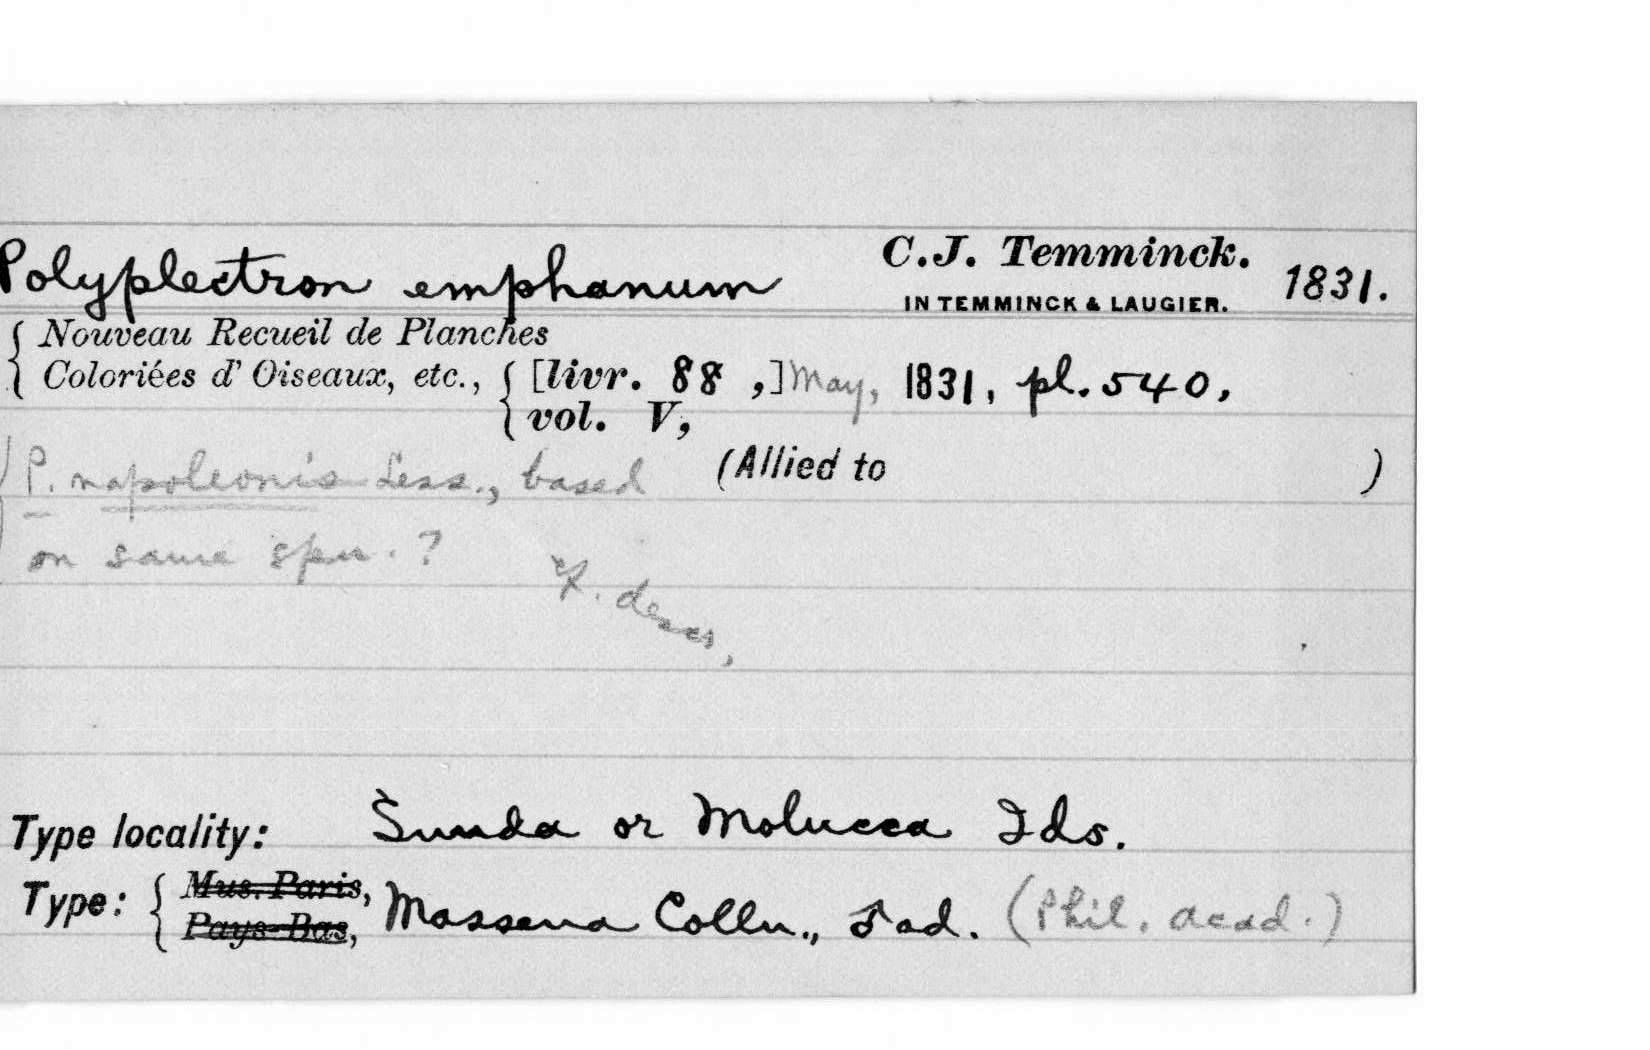 Polyplectron emphanum C.J. Temminck. 1831.
IN TEMMINCK & LAUGIER.
Nouveau Recueil de Planches
Coloriées d' Oiseaux, etc., [livr. 88 ,] May, 1831, pl. 540,
vol. V,
P. napoleonis Less., based (Allied to )
on same spn. ?
cf. descr,
Type locality: Sunda or Molucca Ids.
Type: Mus. Paris, Massena Colln., ♂ ad. (Phil. Acad.)
Pays-Bas,